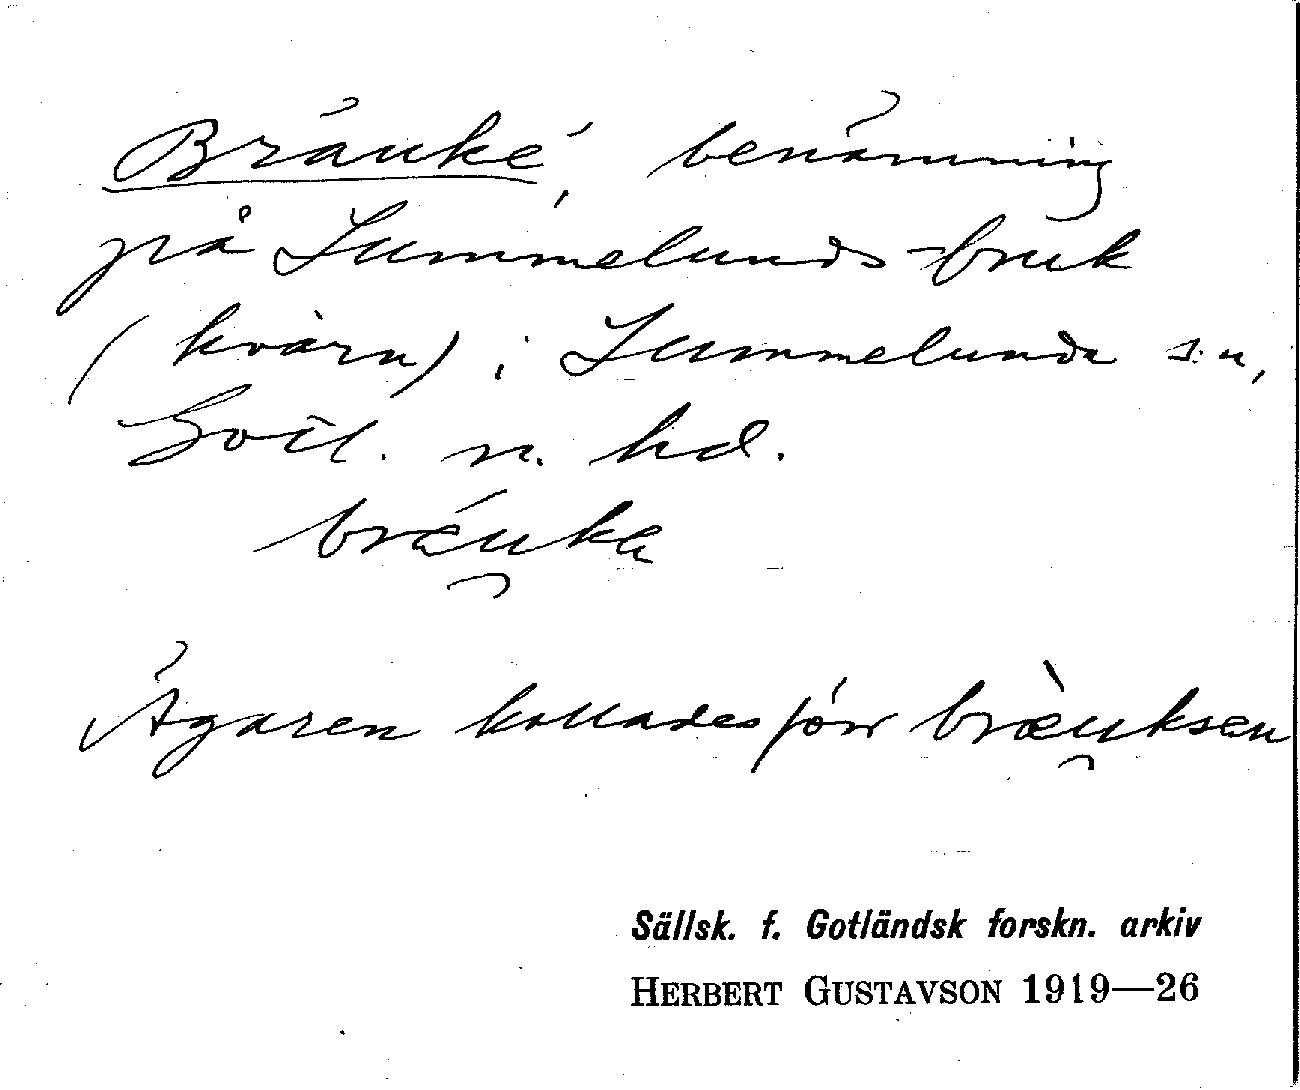 Bräuke', benämning
på Lummelunds-bruk
(kvarn) i Lummelunda s:n,
Gotl. n. hd.
bræ̀u̯ka
Ägaren kallades förr bræ̀u̯ksen
Sällsk. f. Gotländsk forskn. arkiv
HERBERT GUSTAVSON 1919—26